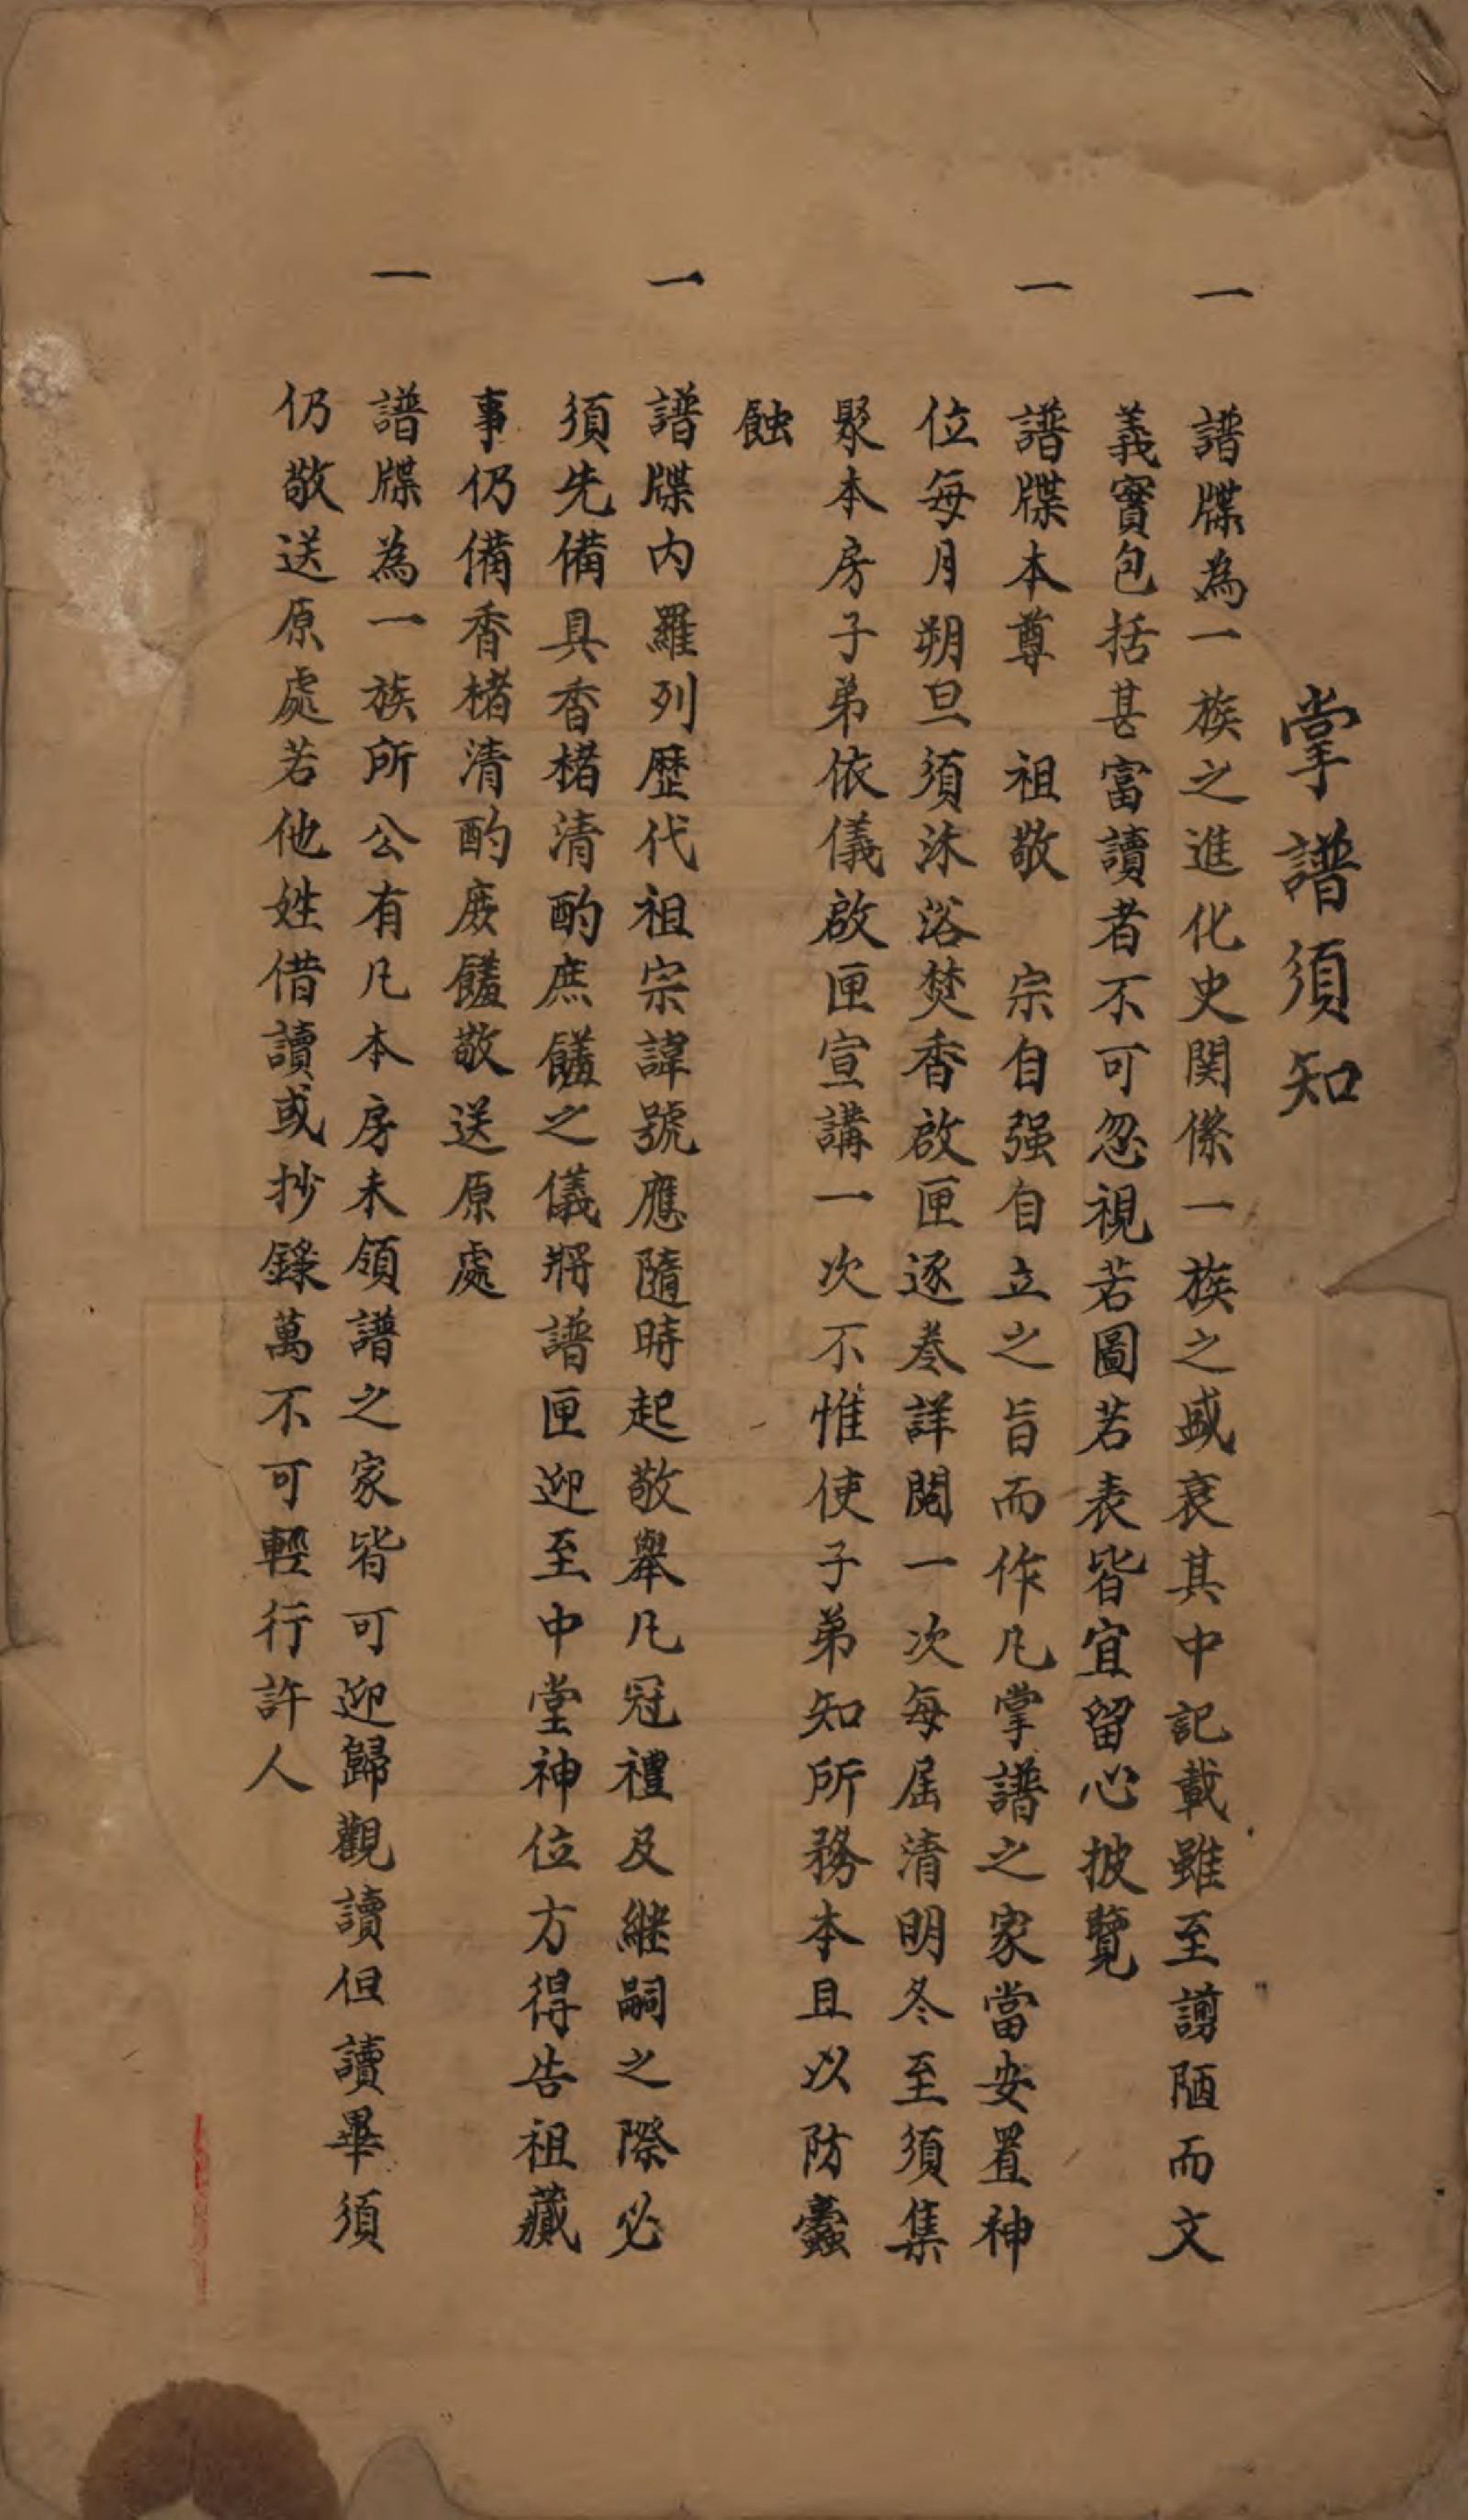 掌譜須知
一 譜牒為一族之進化史関係一族之盛衰其中記載雖至謭陋而文
義實包括甚富讀者不可忽視若圖若表皆宜留心披覽
一 譜牒本尊 祖敬 宗自强自立之旨而作凡掌譜之家當安置神
位每月朔旦須沐浴焚香啟匣逐卷詳閱一次每屆清明冬至須集
聚本房子弟依儀啟匣宣講一次不惟使子弟知所務本且以防蠹
蝕
一 譜牒內羅列歷代祖宗諱號應隨時起敬舉凡冠禮及継嗣之際必
須先備具香楮清酌庶饈之儀將譜匣迎至中堂神位方得告祖藏
事仍備香楮清酌庶饈敬送原處
一 譜牒為一族所公有凡本房未領譜之家皆可迎歸觀讀但讀畢須
仍敬送原處若他姓借讀或抄錄萬不可輕行許人